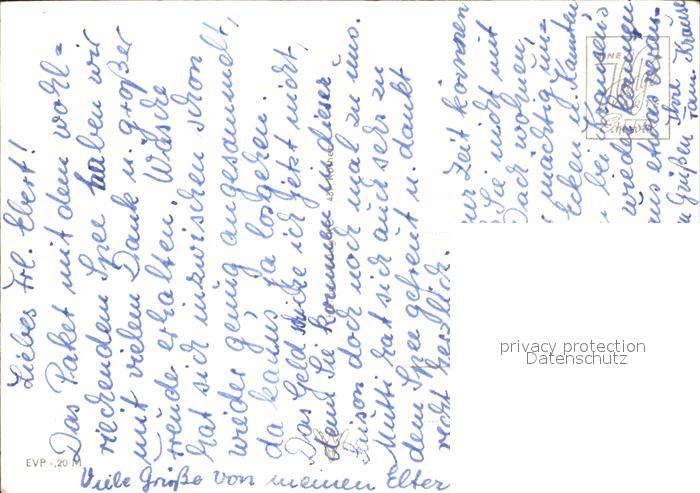 Liebes Frl. Ebert!
Das Paket mit dem wohl=
riechenden Spee haben wir
mit vielem Dank u. großer
Freude erhalten. Wäsche
hat sich inzwischen schon
wieder genug angesammelt,
da kanns ja losgehen.
Das Geld schicke ich jetzt nicht,
denn Sie kommen in dieser
Saison doch noch mal zu uns.
Mutti hat sich auch sehr zu
dem Spee gefreut u. dankt
recht herzlich.
Viele Grüße von meinen Elter
zur Zeit kommen
Sie nicht mit
Dach wohnen,
mächtig um=
Ecken u. Kanten
bei Krausens
wieder
uns etwas
n Grüßen Ihre Fam. Krause
EVP -,20 M
privacy protection
Datenschutz